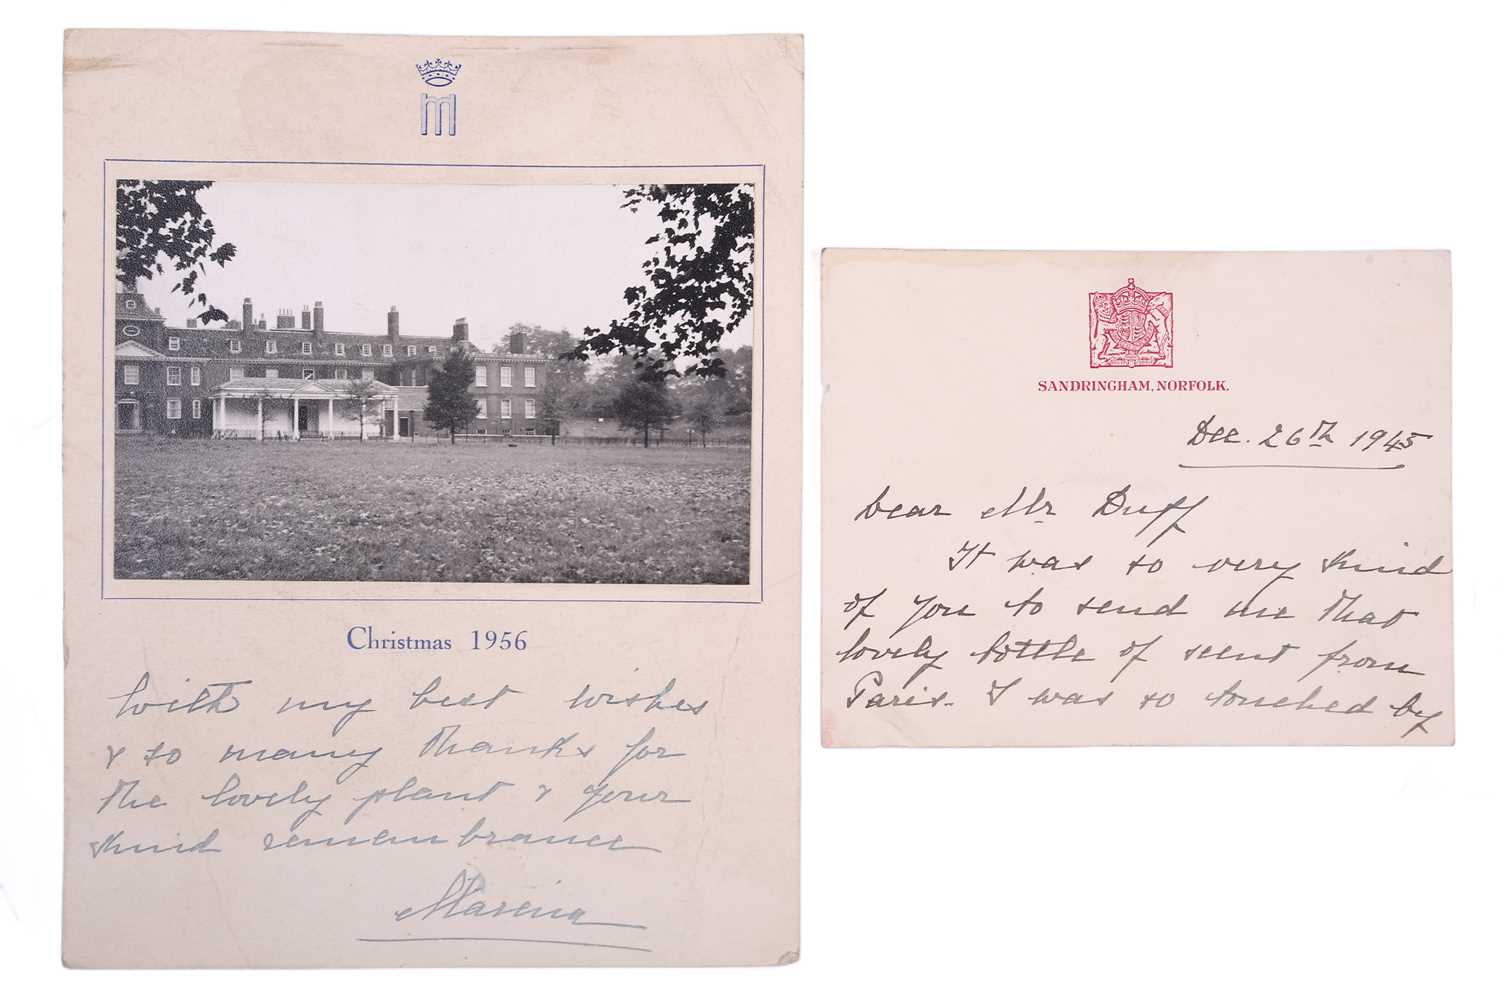 M
Christmas 1956
With my best wishes
& so many thanks for
the lovely plant & your
kind remembrance
Marina
SANDRINGHAM, NORFOLK.
Dec. 26th 1945
Dear Mr Duff
It was so very kind
of you to send me that
lovely bottle of scent from
Paris. I was so touched by